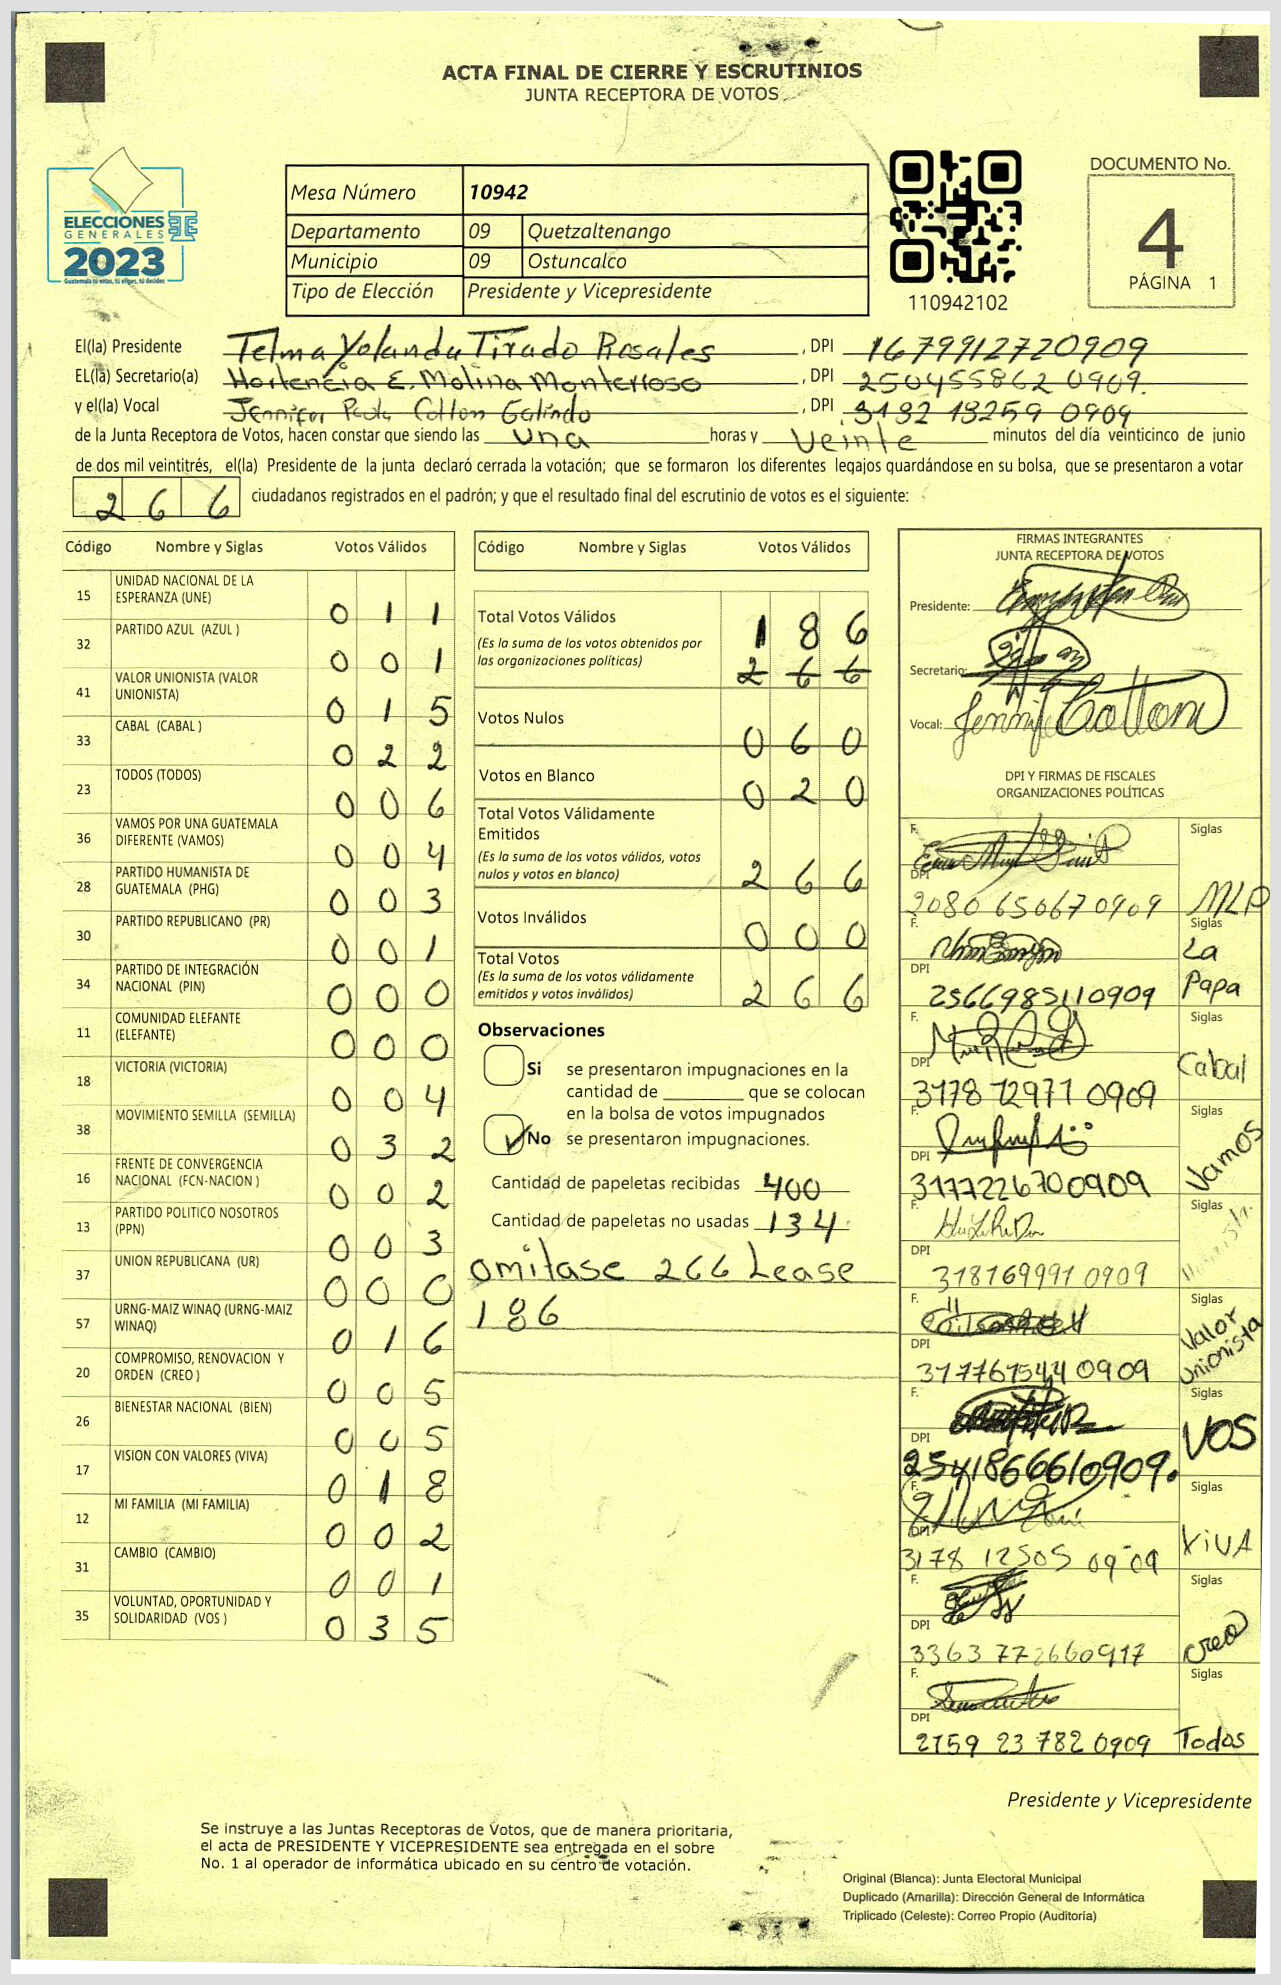 ACTA FINAL DE CIERRE Y ESCRUTINIOS
JUNTA RECEPTORA DE VOTOS
ELECCIONES
GENERALES
2023
Guatemala tú votas, tú eliges, tú decides
Mesa Número 10942
Departamento 09 Quetzaltenango
Municipio 09 Ostuncalco
Tipo de Elección Presidente y Vicepresidente
110942102
DOCUMENTO No.
4
PÁGINA 1
El(la) Presidente Telma Yolanda Tirado Rosales, DPI 1679912720909
EL(la) Secretario(a) Hortencia E. Molina Monterroso, DPI 2504558620909.
y el(la) Vocal Jennifer Paola Cotton Galindo, DPI 3182 18259 0909
de la Junta Receptora de Votos, hacen constar que siendo las una horas y veinte minutos del día veinticinco de junio
de dos mil veintitrés, el(la) Presidente de la junta declaró cerrada la votación; que se formaron los diferentes legajos quardándose en su bolsa, que se presentaron a votar
266 ciudadanos registrados en el padrón; y que el resultado final del escrutinio de votos es el siguiente:
Código Nombre y Siglas Votos Válidos
15 UNIDAD NACIONAL DE LA ESPERANZA (UNE) 011
32 PARTIDO AZUL (AZUL ) 001
41 VALOR UNIONISTA (VALOR UNIONISTA) 015
33 CABAL (CABAL ) 022
23 TODOS (TODOS) 006
36 VAMOS POR UNA GUATEMALA DIFERENTE (VAMOS) 004
28 PARTIDO HUMANISTA DE GUATEMALA (PHG) 003
30 PARTIDO REPUBLICANO (PR) 001
34 PARTIDO DE INTEGRACIÓN NACIONAL (PIN) 000
11 COMUNIDAD ELEFANTE (ELEFANTE) 000
18 VICTORIA (VICTORIA) 004
38 MOVIMIENTO SEMILLA (SEMILLA) 032
16 FRENTE DE CONVERGENCIA NACIONAL (FCN-NACION ) 002
13 PARTIDO POLITICO NOSOTROS (PPN) 003
37 UNION REPUBLICANA (UR) 000
57 URNG-MAIZ WINAQ (URNG-MAIZ WINAQ) 016
20 COMPROMISO, RENOVACION Y ORDEN (CREO ) 005
26 BIENESTAR NACIONAL (BIEN) 005
17 VISION CON VALORES (VIVA) 018
12 MI FAMILIA (MI FAMILIA) 002
31 CAMBIO (CAMBIO) 001
35 VOLUNTAD, OPORTUNIDAD Y SOLIDARIDAD (VOS ) 035
Código Nombre y Siglas Votos Válidos
Total Votos Válidos 186
(Es la suma de los votos obtenidos por las organizaciones políticas) 266
Votos Nulos 060
Votos en Blanco 020
Total Votos Válidamente Emitidos
(Es la suma de los votos válidos, votos nulos y votos en blanco) 266
Votos Inválidos 000
Total Votos
(Es la suma de los votos válidamente emitidos y votos inválidos) 266
Observaciones
Si se presentaron impugnaciones en la
cantidad de ________ que se colocan
en la bolsa de votos impugnados
No se presentaron impugnaciones.
Cantidad de papeletas recibidas 400
Cantidad de papeletas no usadas 134
omitase 266 Lease
186
FIRMAS INTEGRANTES
JUNTA RECEPTORA DE VOTOS
Presidente:
Secretario:
Vocal: Jennifer Cotton
DPI Y FIRMAS DE FISCALES
ORGANIZACIONES POLÍTICAS
F. Siglas
DPI 2080 65067 0909 MLP
F. Siglas
DPI 2566985110909 La Papa
F. Siglas
DPI 3178 12971 0909 Cabal
F. Siglas
DPI 3177226700909 Vamos
F. Siglas
DPI 318169991 0909
F. Siglas
DPI 3177615440909 Valor Unionista
F. Siglas
DPI 2541866610909. VOS
F. Siglas
DPI 3178 12505 0909 ViVA
F. Siglas
DPI 3363 772660917 creo
F. Siglas
DPI 2159 23 782 0909 Todos
Presidente y Vicepresidente
Se instruye a las Juntas Receptoras de Votos, que de manera prioritaria,
el acta de PRESIDENTE Y VICEPRESIDENTE sea entregada en el sobre
No. 1 al operador de informática ubicado en su centro de votación.
Original (Blanca): Junta Electoral Municipal
Duplicado (Amarilla): Dirección General de Informática
Triplicado (Celeste): Correo Propio (Auditoría)